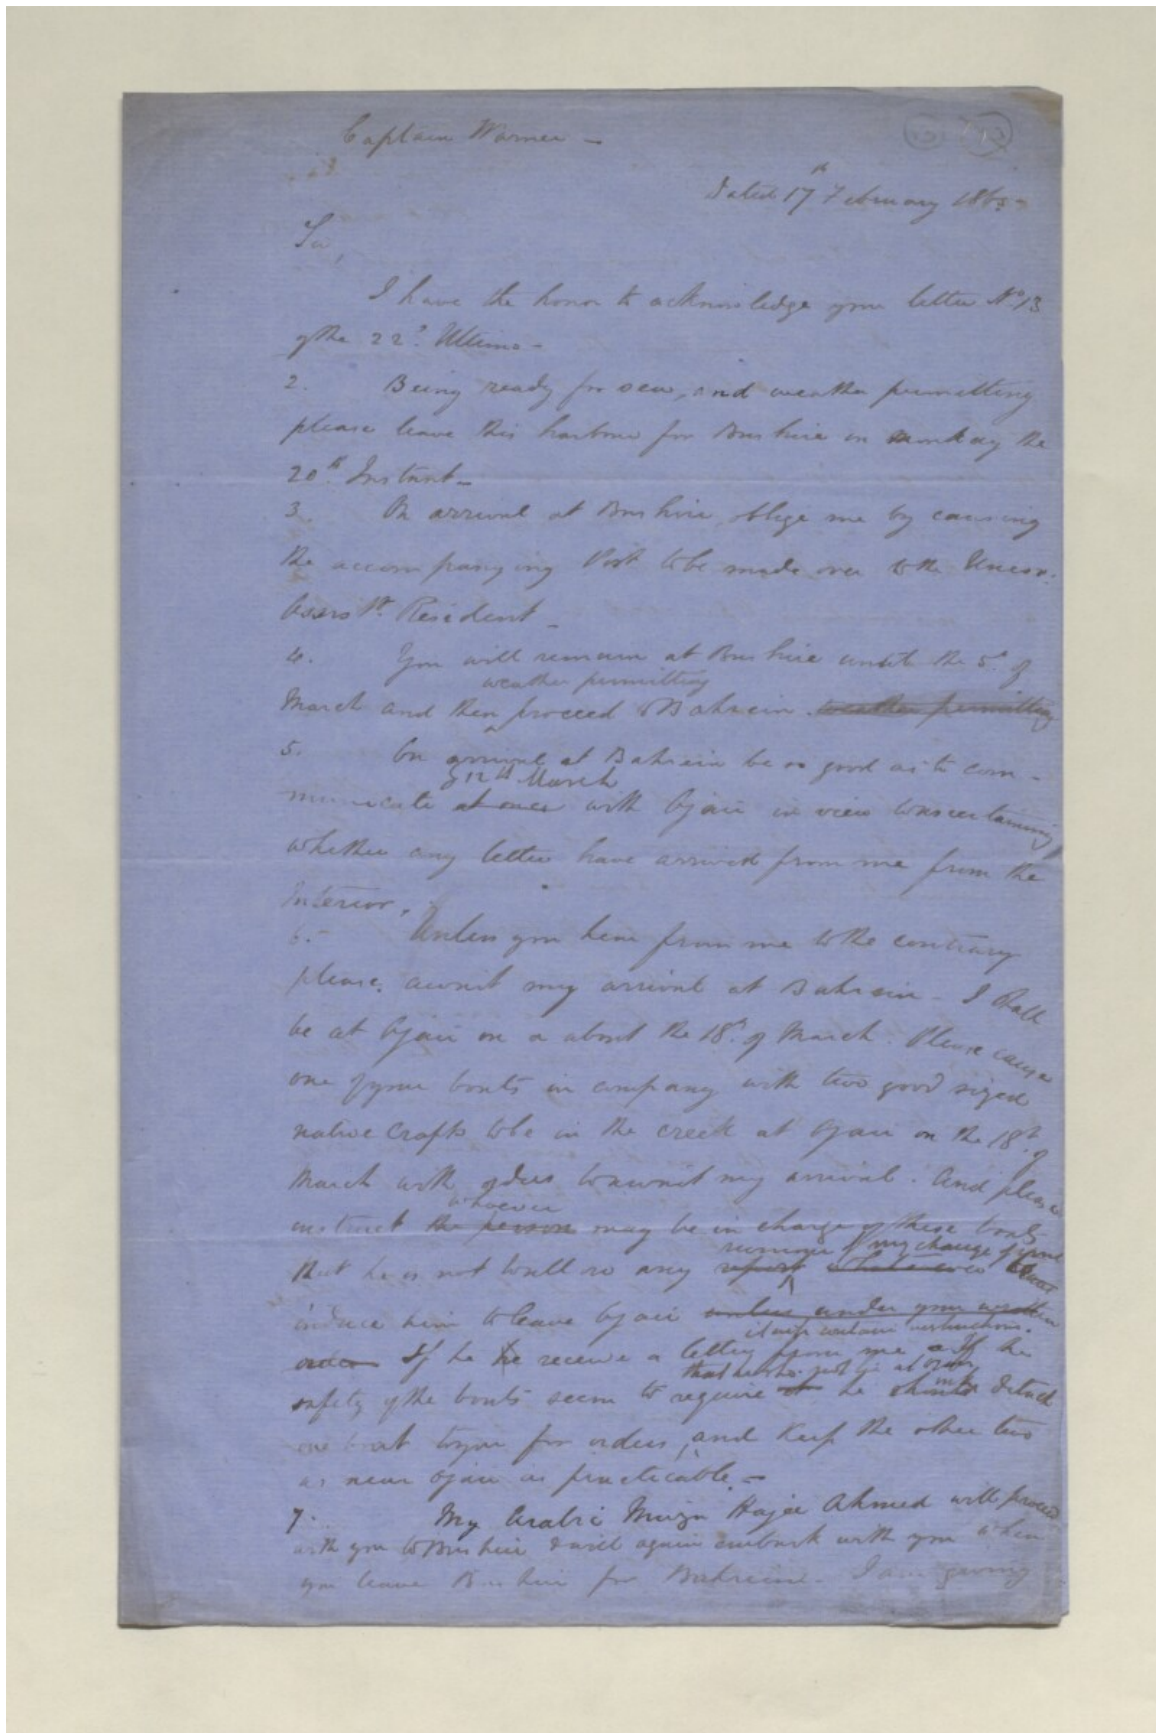 Captain Warner -
Dated 17th February 1865 -
Sir,
I have the honor to acknowledge your letter No 13
of the 22d. Ultimo -
2. Being ready for sea, and weather permitting
please leave this harbour for Bushire on monday the
20th Instant -
3. On arrival at Bushire, oblige me by causing
the accompanying Post to be made over to the Uncov:
Assist Resident -
4. You will remain at Bushire until the 5th of
weather permitting
March and then proceed to Bahrein. weather permitting
5. On arrival at Bahrein be so good as to com-
12th March
municate at once with Ojair in view to ascertaining
whether any letter have arrived from me from the
Interior.
6. Unless you hear from me to the contrary
please, await my arrival at Bahrein - I shall
be at Ojair on or about the 18th of March. Please cause
one of your boats in company with two good sized
native Crafts to be in the creek at Ojair on the 18th of
March with orders to await my arrival. And please
whoever
instruct the person may be in charge of these boats
rumour of my change of
that he is not to allow any report whatsoever to
induce him to leave Ojair unless under your written
it with certain instructions.
order If he receive a letter from me If the
that he sho. not lie at Ojair
safety of the boats seem to require it he should detach
one boat to you for orders, and keep the other two
as near Ojair as practicable. -
7. My Arabic Mirza Hajee Ahmed will proceed
with you to Bushire & will again embark with you when
you leave Bushire for Bahrein. I am giving